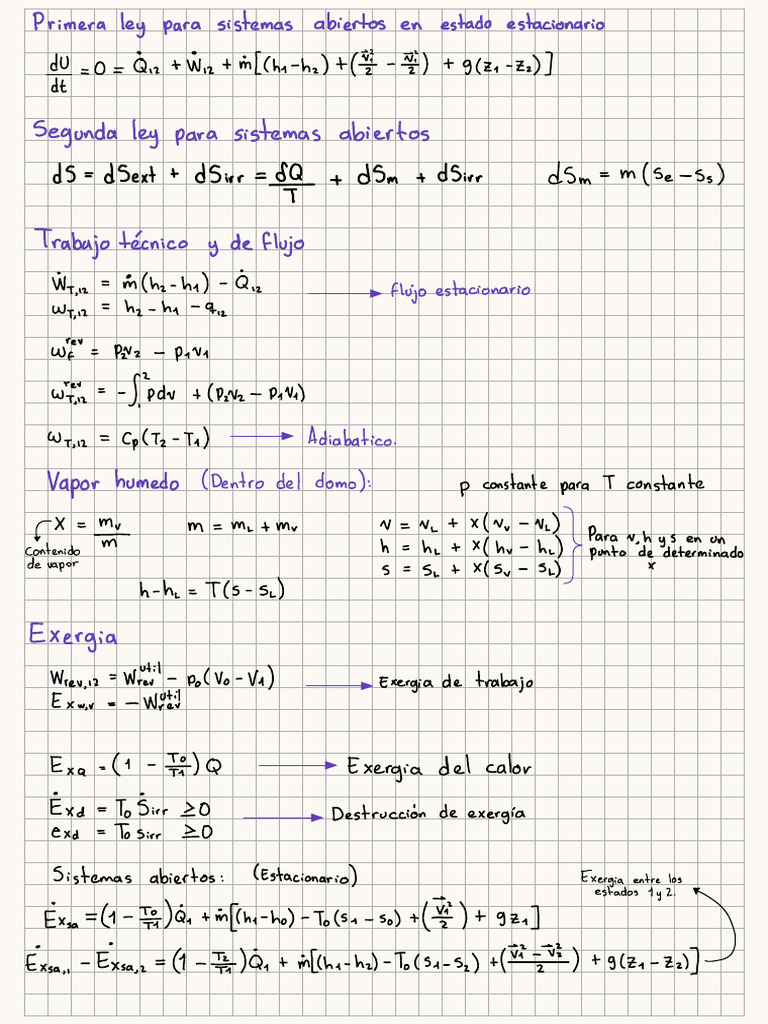 Primera ley para sistemas abiertos en estado estacionario
dU/dt = 0 = Q̇₁₂ + Ẇ₁₂ + ṁ[(h₁-h₂) + (v⃗₁²/2 - v⃗₁²/2) + g(z₁-z₂)]
Segunda ley para sistemas abiertos
dS = dSext + dSirr = δQ/T + dSm + dSirr    dSm = m(se-ss)
Trabajo técnico y de flujo
ẆT,12 = ṁ(h₂-h₁) - Q̇₁₂
ωT,12 = h₂-h₁ - q₁₂ → flujo estacionario
ωf^rev = p₂v₂ - p₁v₁
ωT,12^rev = -∫₁² pdv + (p₂v₂ - p₁v₁)
ωT,12 = Cp(T₂-T₁) → Adiabatico.
Vapor humedo (Dentro del domo): p constante para T constante
X = mv/m    m = mL + mv    v = vL + x(vv - vL)
Contenido de vapor    h = hL + x(hv - hL)    Para v,h y s en un punto de determinado x
s = sL + x(sv - sL)
h-hL = T(s-sL)
Exergia
Wrev,12 = Wrev^util - p₀(V₀-V₁) → Exergia de trabajo
Exw,v = -Wrev^util
ExQ = (1 - T₀/T₁)Q → Exergia del calor
Ėxd = T₀ Ṡirr ≥0
exd = T₀ sirr ≥0 → Destrucción de exergía
Sistemas abiertos: (Estacionario)    Exergia entre los estados 1 y 2.
Ėxsa = (1 - T₀/T₁)Q̇₁ + ṁ[(h₁-h₀) - T₀(s₁-s₀) + (v⃗₁²/2) + gz₁]
Ėxsa,₁ - Ėxsa,₂ = (1 - T₂/T₁)Q̇₁ + ṁ[(h₁-h₂) - T₀(s₁-s₂) + (v⃗₁² - v⃗₂²/2) + g(z₁-z₂)]